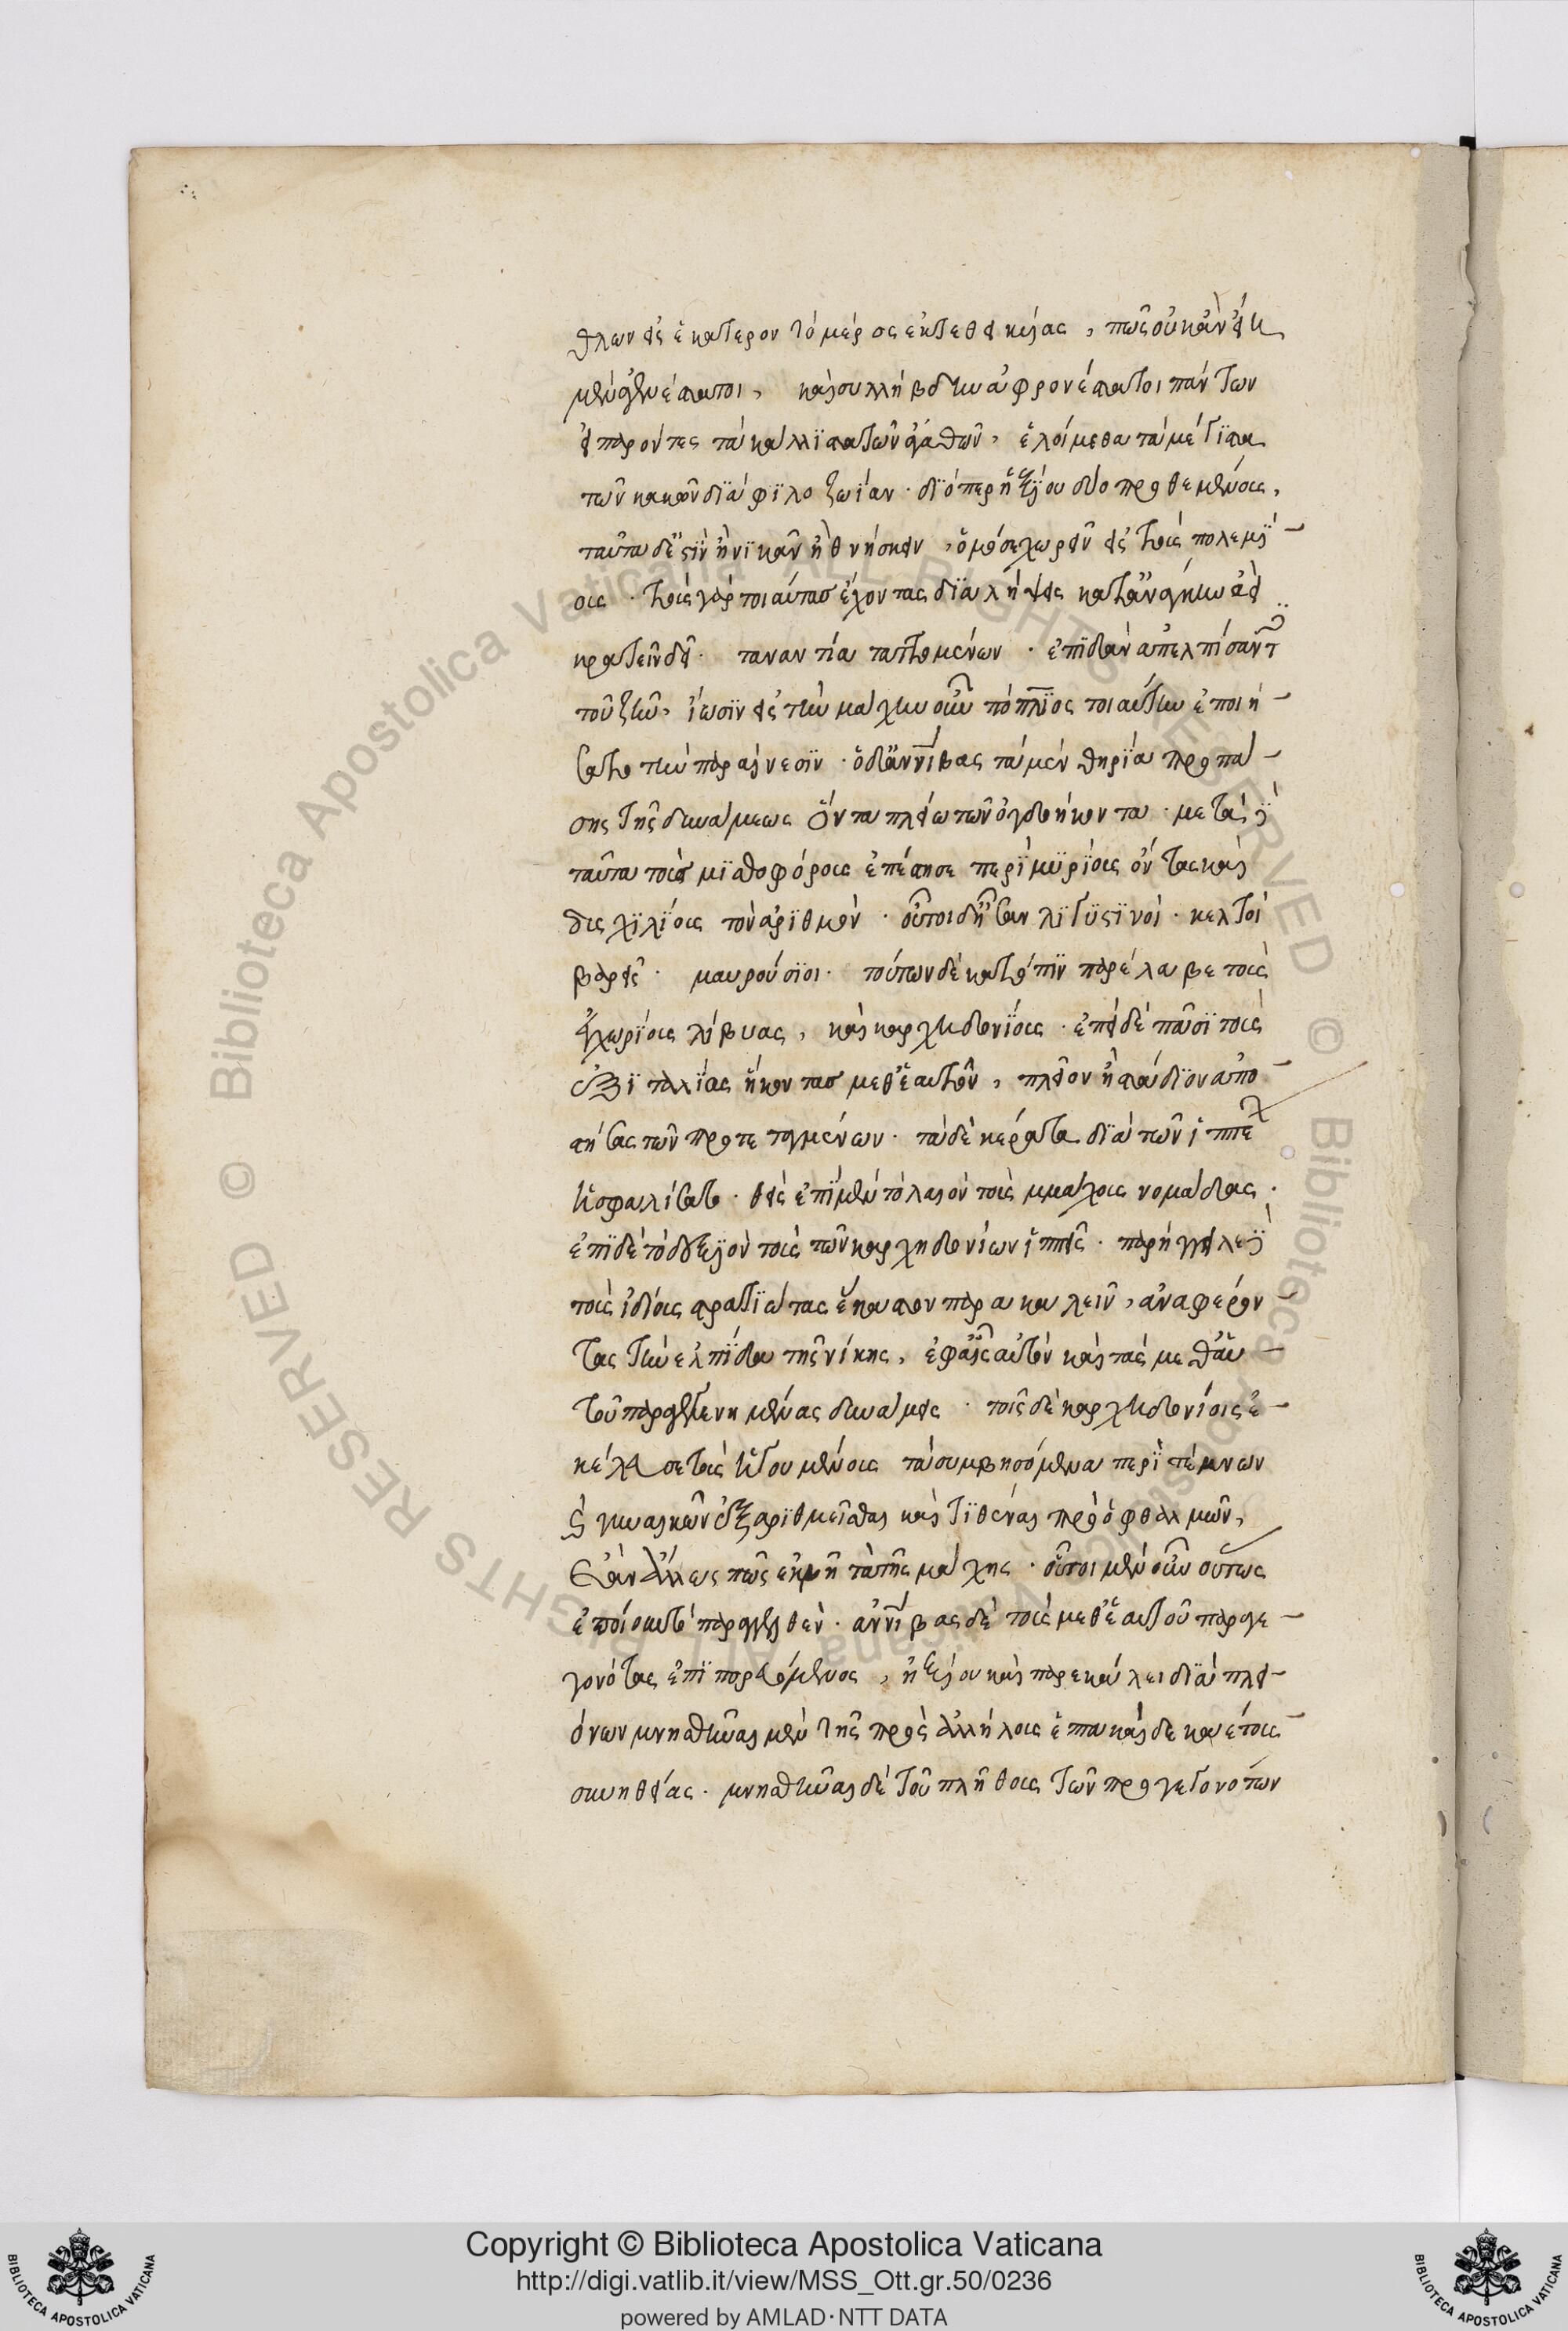 θλων εἰς ἑκάτερον τὸ μέρος ἐκτεθεικυίας, πῶς οὐκ ἂν εἴη
μὲν ἀγενέστατοι, καὶ συλλήβδην ἀφρονέστατοι πάντων
εἰ παρόντες τὰ κάλλιστα τῶν ἀγαθῶν, ἑλοίμεθα τὰ μέγιστα
τῶν κακῶν διὰ φιλοζωίαν· διόπερ ἠξίου δύο προθεμένους,
ταῦτα δ' ἐστὶν ἢ νικᾶν ἢ θνήσκειν, ὁμόσε χωρεῖν εἰς τοὺς πολεμί-
ους· τοὺς γὰρ τοιαύτας ἔχοντας διαλήψεις κατ' ἀνάγκην ἀεὶ
κρατεῖν δεῖ· ταναντία ταττομένων· ἐπιδὰν ἀπελπίσαντες
τοῦ ζῆν, ἴωσιν εἰς τὴν μάχην οὖν πόπλϊος τοιαύτην ἐποιή-
σατο τὴν παραίνεσιν· ὁ δ' ἀννίβας τὰ μὲν θηρία προ πά-
σης τῆς δυνάμεως ὄντα πλείω τῶν ὀγδοήκοντα· μετὰ δὲ
ταῦτα τοὺς μισθοφόρους ἐπέστησε περὶ μυρίους ὄντας καὶ
δισχιλίους τὸν ἀριθμόν· οὗτοι δ' ἦσαν λιγυστινοί· κελτοί
βαρεῖς· μαυρούσιοι· τούτων δὲ κατόπιν παρέλαβε τοὺς
ἐγχωρίους λίβυας, καὶ καρχηδονίους· ἐπεὶ δὲ πᾶσι τοὺς
ἐξ ἰταλίας ἥκοντας μεθ' ἑαυτὸν, πλεῖον ἢ στάδιον ἀπο-
στήσας τῶν προτεταγμένων· τὰ δὲ κέρατα διὰ τῶν ἱππέων
ἠσφαλίσατο· θεὶς ἐπὶ μὲν τὸ λαιὸν τοὺς μμάχους νομάδας·
ἐπὶ δὲ τὸ δεξιὸν τοὺς τῶν καρχηδονίων ἱππεῖς· παρήγγειλε δὲ
τοὺς ἰδίους στρατιώτας ἕκαστον παρακαλεῖν, ἀναφέρον-
τας τὴν ἐλπίδα τῆς νίκης, ἐφ' ἑαυτὸν καὶ τὰς μεθ' αὑ-
τοῦ παραγεγενημένας δυνάμεις· τοῖς δὲ καρχηδονίοις ἐ-
κέλευσε τοὺς ἡγουμένους τὰ συμβησόμενα περὶ τέκνων
καὶ γυναικῶν ἐξαριθμεῖσθαι καὶ τιθέναι πρὸ ὀφθαλμῶν,
ἐὰν ἄλλως πως ἐκβῆ τὰ τῆς μάχης· οὗτοι μὲν οὖν οὕτως
ἐποίουν τὸ παραγγελθέν· ἀννίβας δὲ τοὺς μεθ' ἑαυτοῦ παραγε-
γονότας ἐπιπορευόμενος, ἠξίου καὶ παρεκάλει διὰ πλει-
όνων μνησθῆναι μὲν τῆς πρὸς ἀλλήλους ἑπτακαίδεκα έτους
συνηθείας· μνησθῆναι δὲ τοῦ πλήθους τῶν προγεγονότων
Copyright © Biblioteca Apostolica Vaticana
http://digi.vatlib.it/view/MSS_Ott.gr.50/0236
powered by AMLAD·NTT DATA